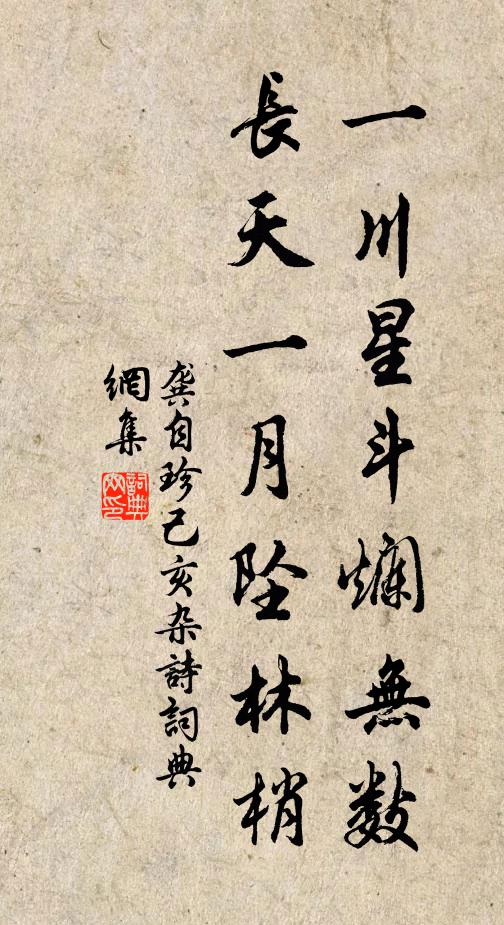 一川星斗爛無数
長天一月墜林梢
龔自珍己亥杂詩詞典
網集
詞典
网印